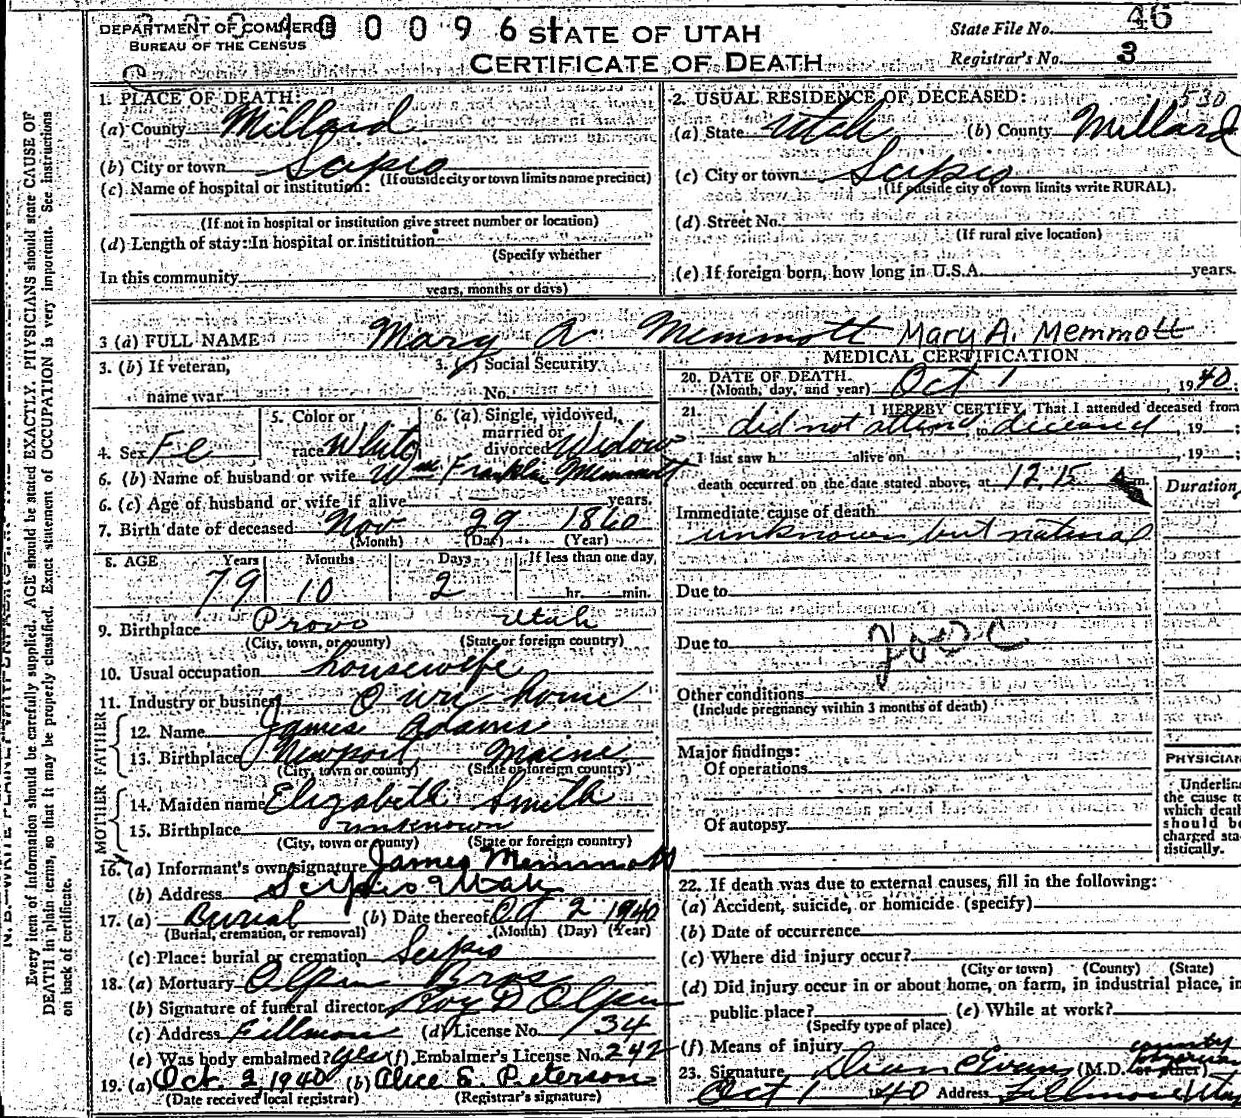 DEPARTMENT OF COMMERCE
BUREAU OF THE CENSUS
0 0 0 9 6
STATE OF UTAH
CERTIFICATE OF DEATH
State File No. 46
Registrar's No. 3
N. B.—WRITE PLAINLY
Every item of information should be carefully supplied. AGE should be stated EXACTLY. PHYSICIANS should state CAUSE OF
DEATH in plain terms, so that it may be properly classified. Exact statement of OCCUPATION is very important. See instructions
on back of certificate.
1. PLACE OF DEATH:
(a) County Millard
(b) City or town Scipio
(If outside city or town limits name precinct)
(c) Name of hospital or institution:
(If not in hospital or institution give street number or location)
(d) Length of stay: In hospital or institution
(Specify whether
In this community
years, months or days)
2. USUAL RESIDENCE OF DECEASED: 530
(a) State Utah (b) County Millard
(c) City or town Scipio
(If outside city or town limits write RURAL).
(d) Street No.
(If rural give location)
(e) If foreign born, how long in U.S.A. years.
3 (a) FULL NAME Mary A Memmott Mary A. Memmott
3. (b) If veteran,
name war
3. (c) Social Security
No.
4. Sex Fe
5. Color or
race White
6. (a) Single, widowed,
married or
divorced Widow
6. (b) Name of husband or wife Wm Franklin Memmott
6. (c) Age of husband or wife if alive years.
7. Birth date of deceased Nov 29 1860
(Month) (Day) (Year)
8. AGE Years Months Days If less than one day,
79 10 2 hr. min.
9. Birthplace Provo Utah
(City, town, or county) (State or foreign country)
10. Usual occupation housewife
11. Industry or business Own home
FATHER
12. Name James Adams
13. Birthplace Newport, Maine
(City, town or county) (State or foreign country)
MOTHER
14. Maiden name Elizabeth Smith
15. Birthplace unknown
(City, town or county) (State or foreign country)
16. (a) Informant's own signature James Memmott
(b) Address Scipio Utah
17. (a) Burial (b) Date thereof Oct 2 1940
(Burial, cremation, or removal) (Month) (Day) (Year)
(c) Place: burial or cremation Scipio
18. (a) Mortuary Olpin Bros
(b) Signature of funeral director Roy D Olpin
(c) Address Fillmore (d) License No. 134
(e) Was body embalmed? yes (f) Embalmer's License No. 242
19. (a) Oct. 2, 1940 (b) Alice S. Peterson
(Date received local registrar) (Registrar's signature)
MEDICAL CERTIFICATION
20. DATE OF DEATH.
(Month, day, and year) Oct 1, 1940;
21. I HEREBY CERTIFY, That I attended deceased from
did not attend deceased, 19 ;
I last saw h alive on , 19 ;
death occurred on the date stated above, at 12.15 m.
Duration
Immediate cause of death
unknown but natural
Due to
Due to
Other conditions
(Include pregnancy within 3 months of death)
Major findings:
Of operations
Of autopsy
PHYSICIAN
Underline
the cause to
which death
should be
charged sta-
tistically.
22. If death was due to external causes, fill in the following:
(a) Accident, suicide, or homicide (specify)
(b) Date of occurrence
(c) Where did injury occur?
(City or town) (County) (State)
(d) Did injury occur in or about home, on farm, in industrial place, in
public place? (e) While at work?
(Specify type of place)
(f) Means of injury
county
physician
23. Signature Dean Evans (M.D. or other)
Oct 1 1940 Address Fillmore Utah